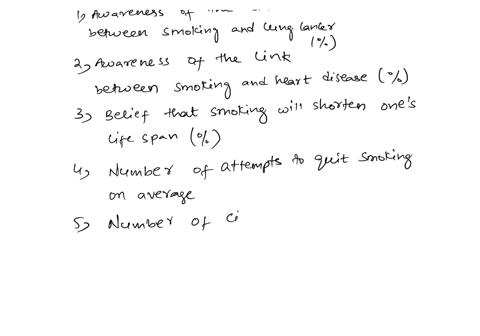 1) Awareness of
between smoking and lung cancer
(%)
2) Awareness of the Link
between smoking and heart disease (%)
3) Belief that smoking will shorten one's
life span (%)
4) Number of attempts to quit smoking
on average
5) Number of